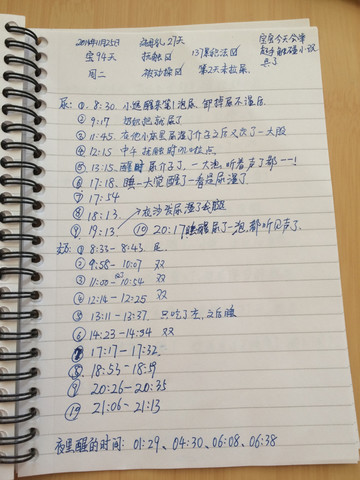 2014年11月25日 混母乳27天 宝宝今天会伸
宝94天 抚触区 137累积法区 赶手触碰小说
周二 被动操区 第2天未拉屎. 具了
尿: ① 8:30. 醒来第1泡尿
② 9:17 奶奶把就尿了
③ 11:45. 在他小床里尿湿了介子之后又次了一大股
④ 12:15 中午抚触时
⑤ 13:15. 醒时尿介子了, 一大泡, 听着声了都——!
⑥ 17:18. 睡一大觉醒了一看是尿湿了
⑦ 17:54
⑧ 18:13. 在沙发尿湿了我腿
⑨ 19:13 ⑩ 20:17 睡醒尿了一泡, 都听见声了.
① 8:33-8:43.
② 9:58-10:07 双
③ 11:00-10:54 双
④ 12:14-12:25 双
⑤ 13:11-13:37. 只吃了左, 之后睡
⑥ 14:23-14:34 双
⑦ 17:17-17:32.
⑧ 18:53-18:59
⑨ 20:26-20:35
⑩ 21:06-21:13
夜里醒的时间: 01:29、04:30、06:08、06:38